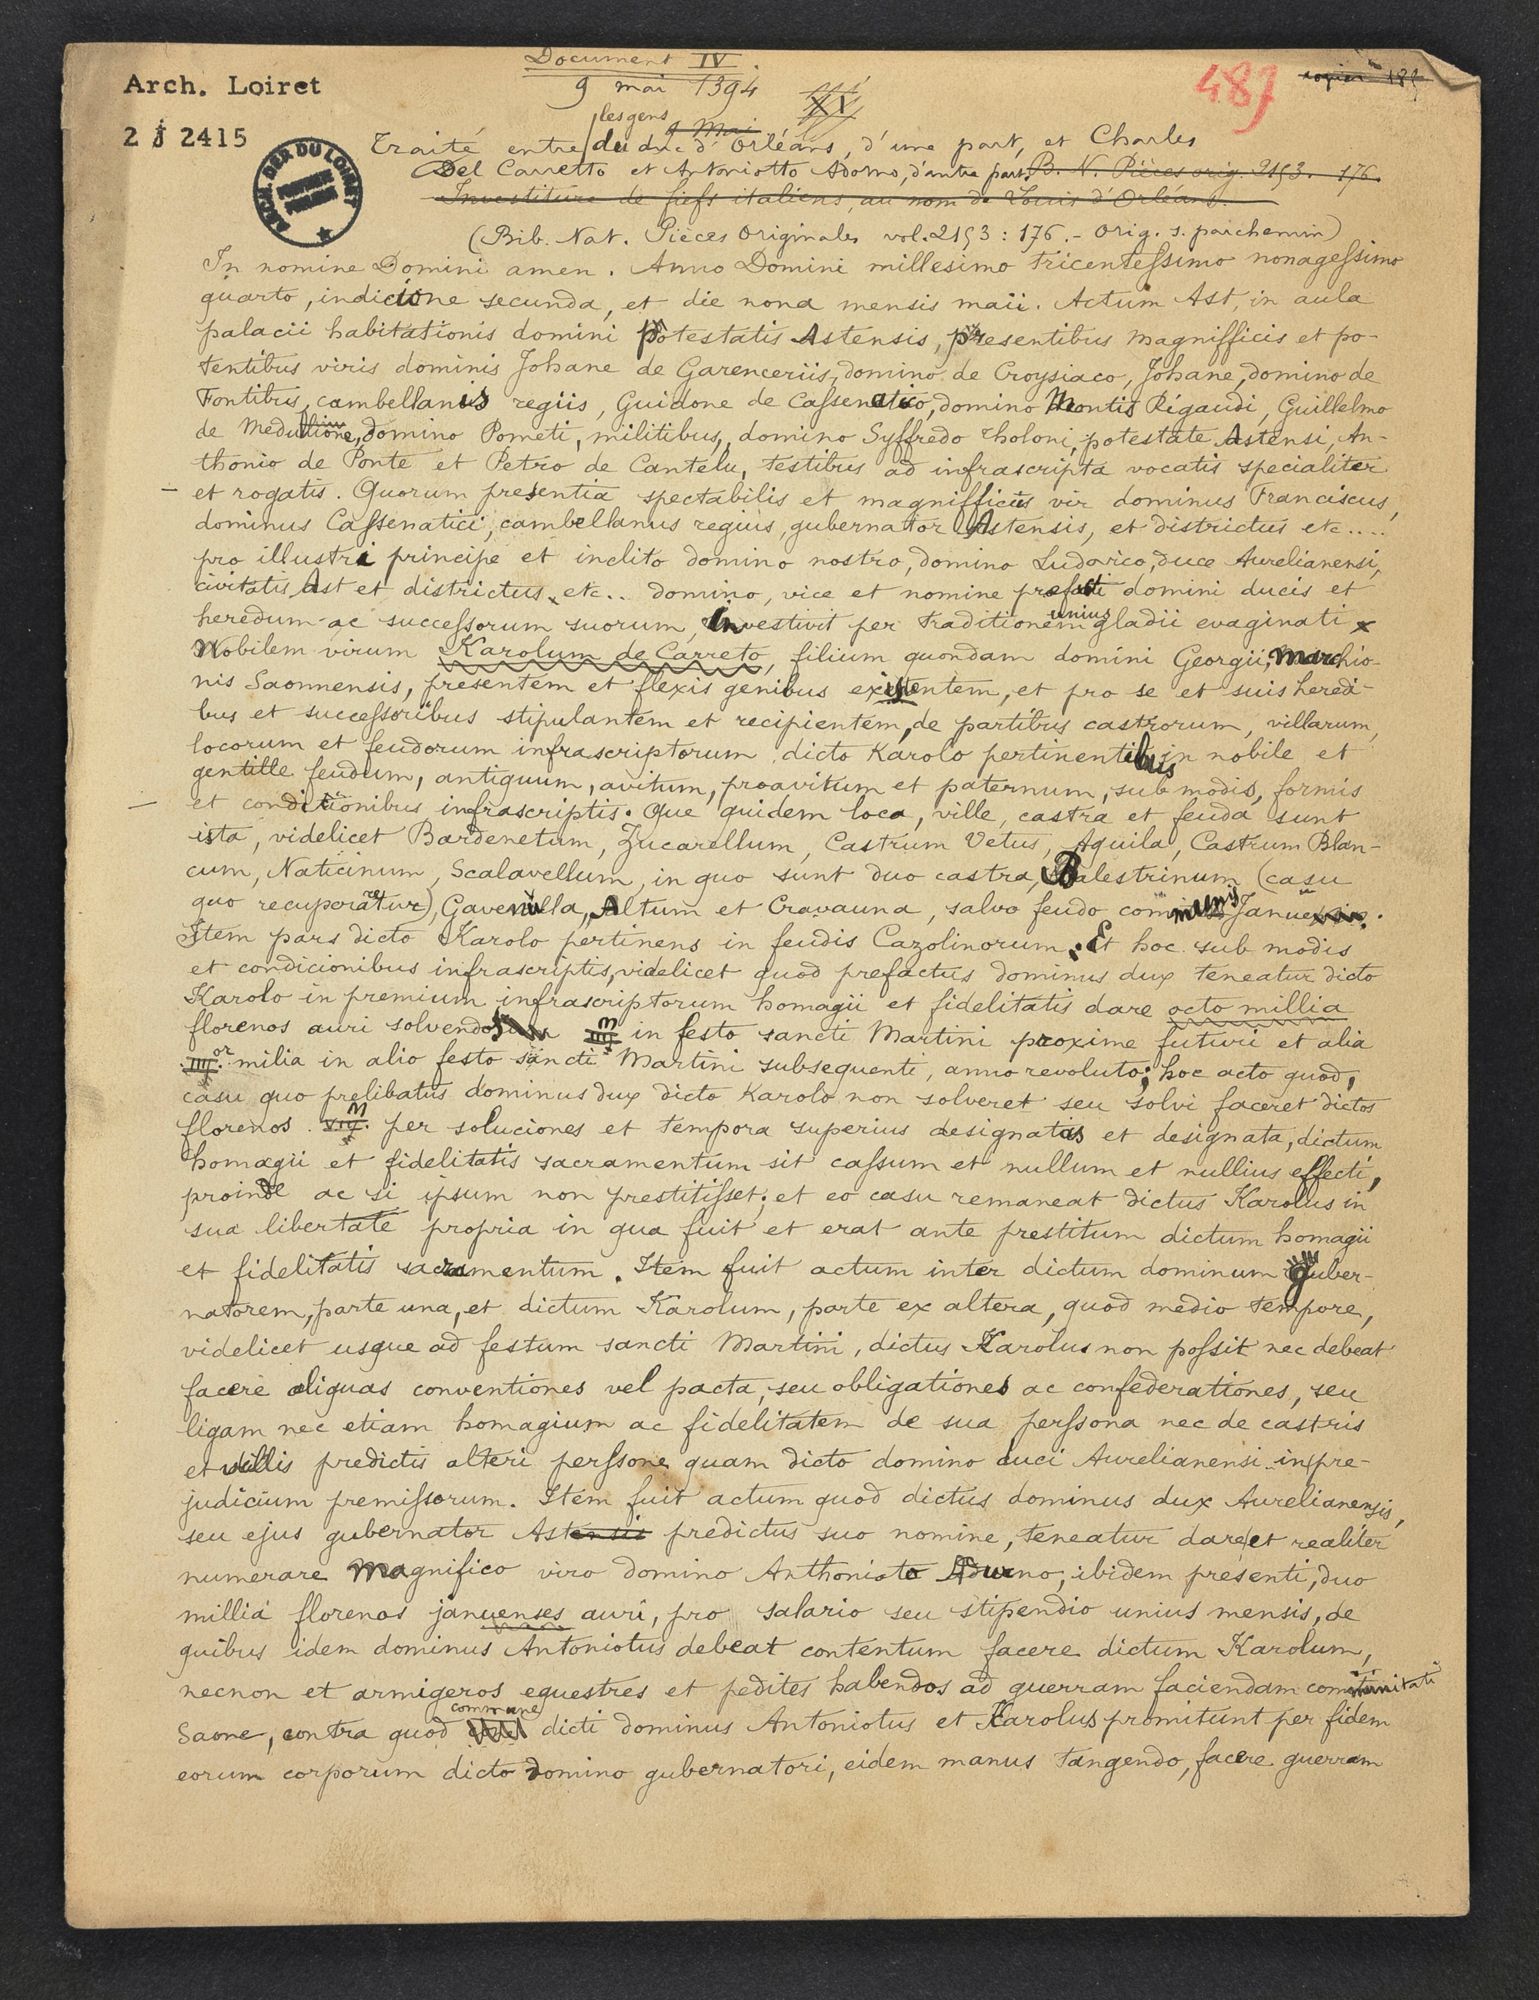 Document IV.
Arch. Loiret
9 mai 1394
XV
487
copier 182
2 J 2415
ARCH. DEP. DU LOIRET
les gens
9 Mai
Traité entre du duc d'Orléans, d'une part, et Charles
Del Carretto et Antoniotto Adorno, d'autre part. B. N. Pièces orig. 2153. 176.
Investiture de fiefs italiens, au nom de Louis d'Orléans.
(Bib. Nat. Pièces Originales vol. 2153 : 176. - Orig. s. parchemin)
In nomine Domini amen. Anno Domini millesimo tricentessimo nonagessimo
quarto, indicione secunda, et die nona mensis maii. Actum Ast, in aula
palacii habitationis domini potestatis Astensis, presentibus magnifficis et po-
tentibus viris dominis Johane de Garenceriis, domino de Croysiaco, Johane, domino de
Fontibus, cambellanis regiis, Guidone de Cassenatico, domino Montis Rigaudi, Guillelmo
de Medullione, domino Pometi, militibus, domino Syffredo Tholoni, potestate Astensi, An-
thonio de Ponte et Petro de Cantelu, testibus ad infrascripta vocatis specialiter
et rogatis. Quorum presentia spectabilis et magnifficus vir dominus Franciscus,
dominus Cassenatici, cambellanus regius, gubernator Astensis, et districtus etc....
pro illustri principe et inclito domino nostro, domino Ludovico, duce Aurelianensi,
civitatis Ast et districtus, etc.. domino, vice et nomine prefati domini ducis et
heredum ac successorum suorum, investivit per traditionem unius gladii evaginati
Nobilem virum Karolum de Carreto, filium quondam domini Georgii, marchio-
nis Saonnensis, presentem et flexis genibus existentem, et pro se et suis heredi-
bus et successoribus stipulantem et recipientem, de partibus castrorum, villarum,
locorum et feudorum infrascriptorum dicto Karolo pertinentibus in nobile et
gentille feudum, antiquum, avitum, proavitum et paternum, sub modis, formis
et condicionibus infrascriptis. Que quidem loca, ville, castra et feuda sunt
ista, videlicet Bardenetum, Zucarellum, Castrum Vetus, Aquila, Castrum Blan-
cum, Naticinum, Scalavellum, in quo sunt duo castra, Balestrinum (casu
quo recuperaretur), Gavenulla, Altum et Cravauna, salvo feudo communis Janue.
Item pars dicto Karolo pertinens in feudis Cazolinorum. Et hoc sub modis
et condicionibus infrascriptis, videlicet quod prefactus dominus dux teneatur dicto
Karolo in premium infrascriptorum homagii et fidelitatis dare octo millia
florenos auri solvendos IIII M in festo sancti Martini proxime futuri et alia
IIII or milia in alio festo sancti Martini subsequenti, anno revoluto; hoc acto quod,
casu quo prelibatus dominus dux dicto Karolo non solveret seu solvi faceret dictos
florenos VIII M per soluciones et tempora superius designatas et designata, dictum
homagii et fidelitatis sacramentum sit cassum et nullum et nullius effecti,
proinde ac si ipsum non prestitisset; et eo casu remaneat dictus Karolus in
sua libertate propria in qua fuit et erat ante prestitum dictum homagii
et fidelitatis sacramentum. Item fuit actum inter dictum dominum guber-
natorem, parte una, et dictum Karolum, parte ex altera, quod medio tempore,
videlicet usque ad festum sancti Martini, dictus Karolus non possit nec debeat
facere aliquas conventiones vel pacta, seu obligationes ac confederationes, seu
ligam nec etiam homagium ac fidelitatem de sua perssona nec de castris
et villis predictis alteri perssone quam dicto domino duci Aurelianensi in pre-
judicium premissorum. Item fuit actum quod dictus dominus dux Aurelianensis,
seu ejus gubernator Astensis predictus suo nomine, teneatur dare et realiter
numerare magnifico viro domino Anthonioto Adurno, ibidem presenti, duo
millia florenos januenses auri, pro salario seu stipendio unius mensis, de
quibus idem dominus Antoniotus debeat contentum facere dictum Karolum,
necnon et armigeros equestres et pedites habendos ad guerram faciendam comunitati
Saone, contra quod commune dicti dominus Antoniotus et Karolus promitunt per fidem
eorum corporum dicto domino gubernatori, eidem manus tangendo, facere guerram